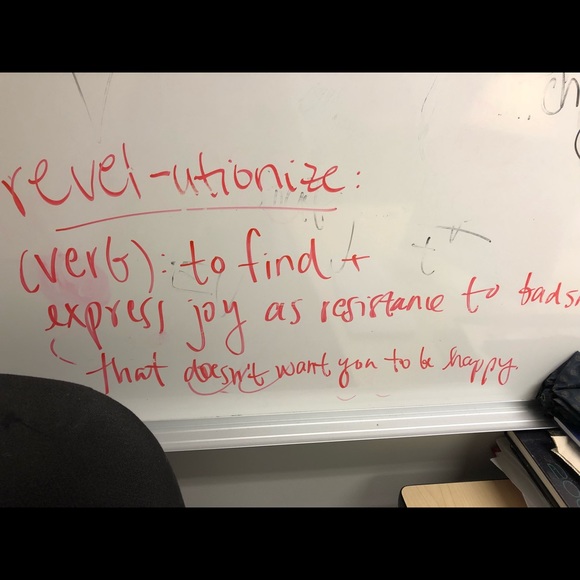 ch
revel-utionize:
(verb): to find +
express joy as resistance to bads
that doesn't want you to be happy